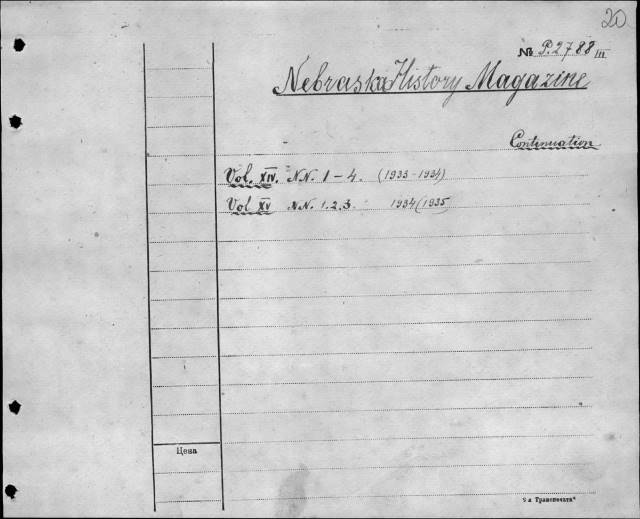 20
№ P.2788 III
Nebraska History Magazine
Continuation
Vol. XIV. N.N. 1-4. (1933-1934)
Vol XV N.N. 1.2.3. 1934(1935)
Цена
9 я Транспечать"